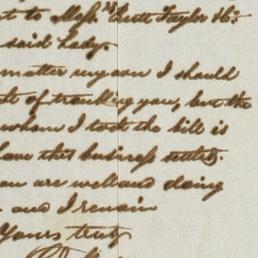 t to Mess.rs Cutt Taylor &c.
said Lady.
matter my own I should
of troubling you, but the
whom I took the bill is
have this business settled.
you are well and doing
and I remain
Yours truly